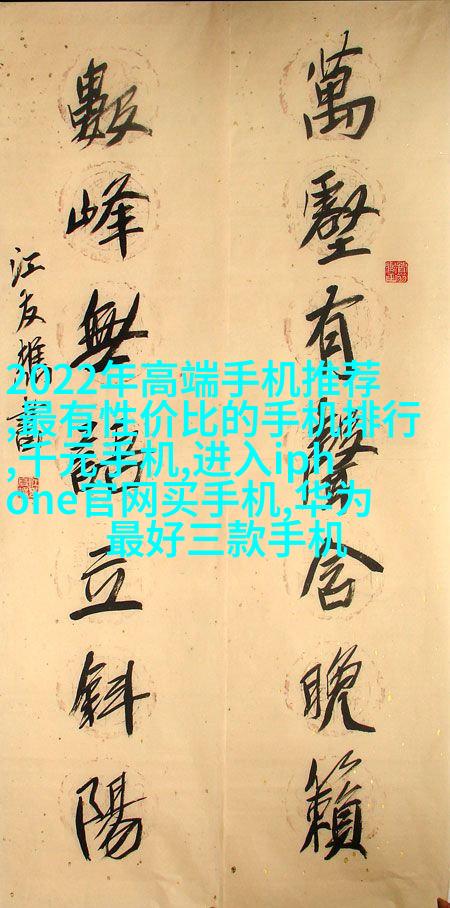 萬壑有聲含晚籟
數峰無語立斜陽
江友樵書
2022年高端手机推荐
,最有性价比的手机排行
,千元手机,进入iph
one官网买手机,华为
最好三款手机